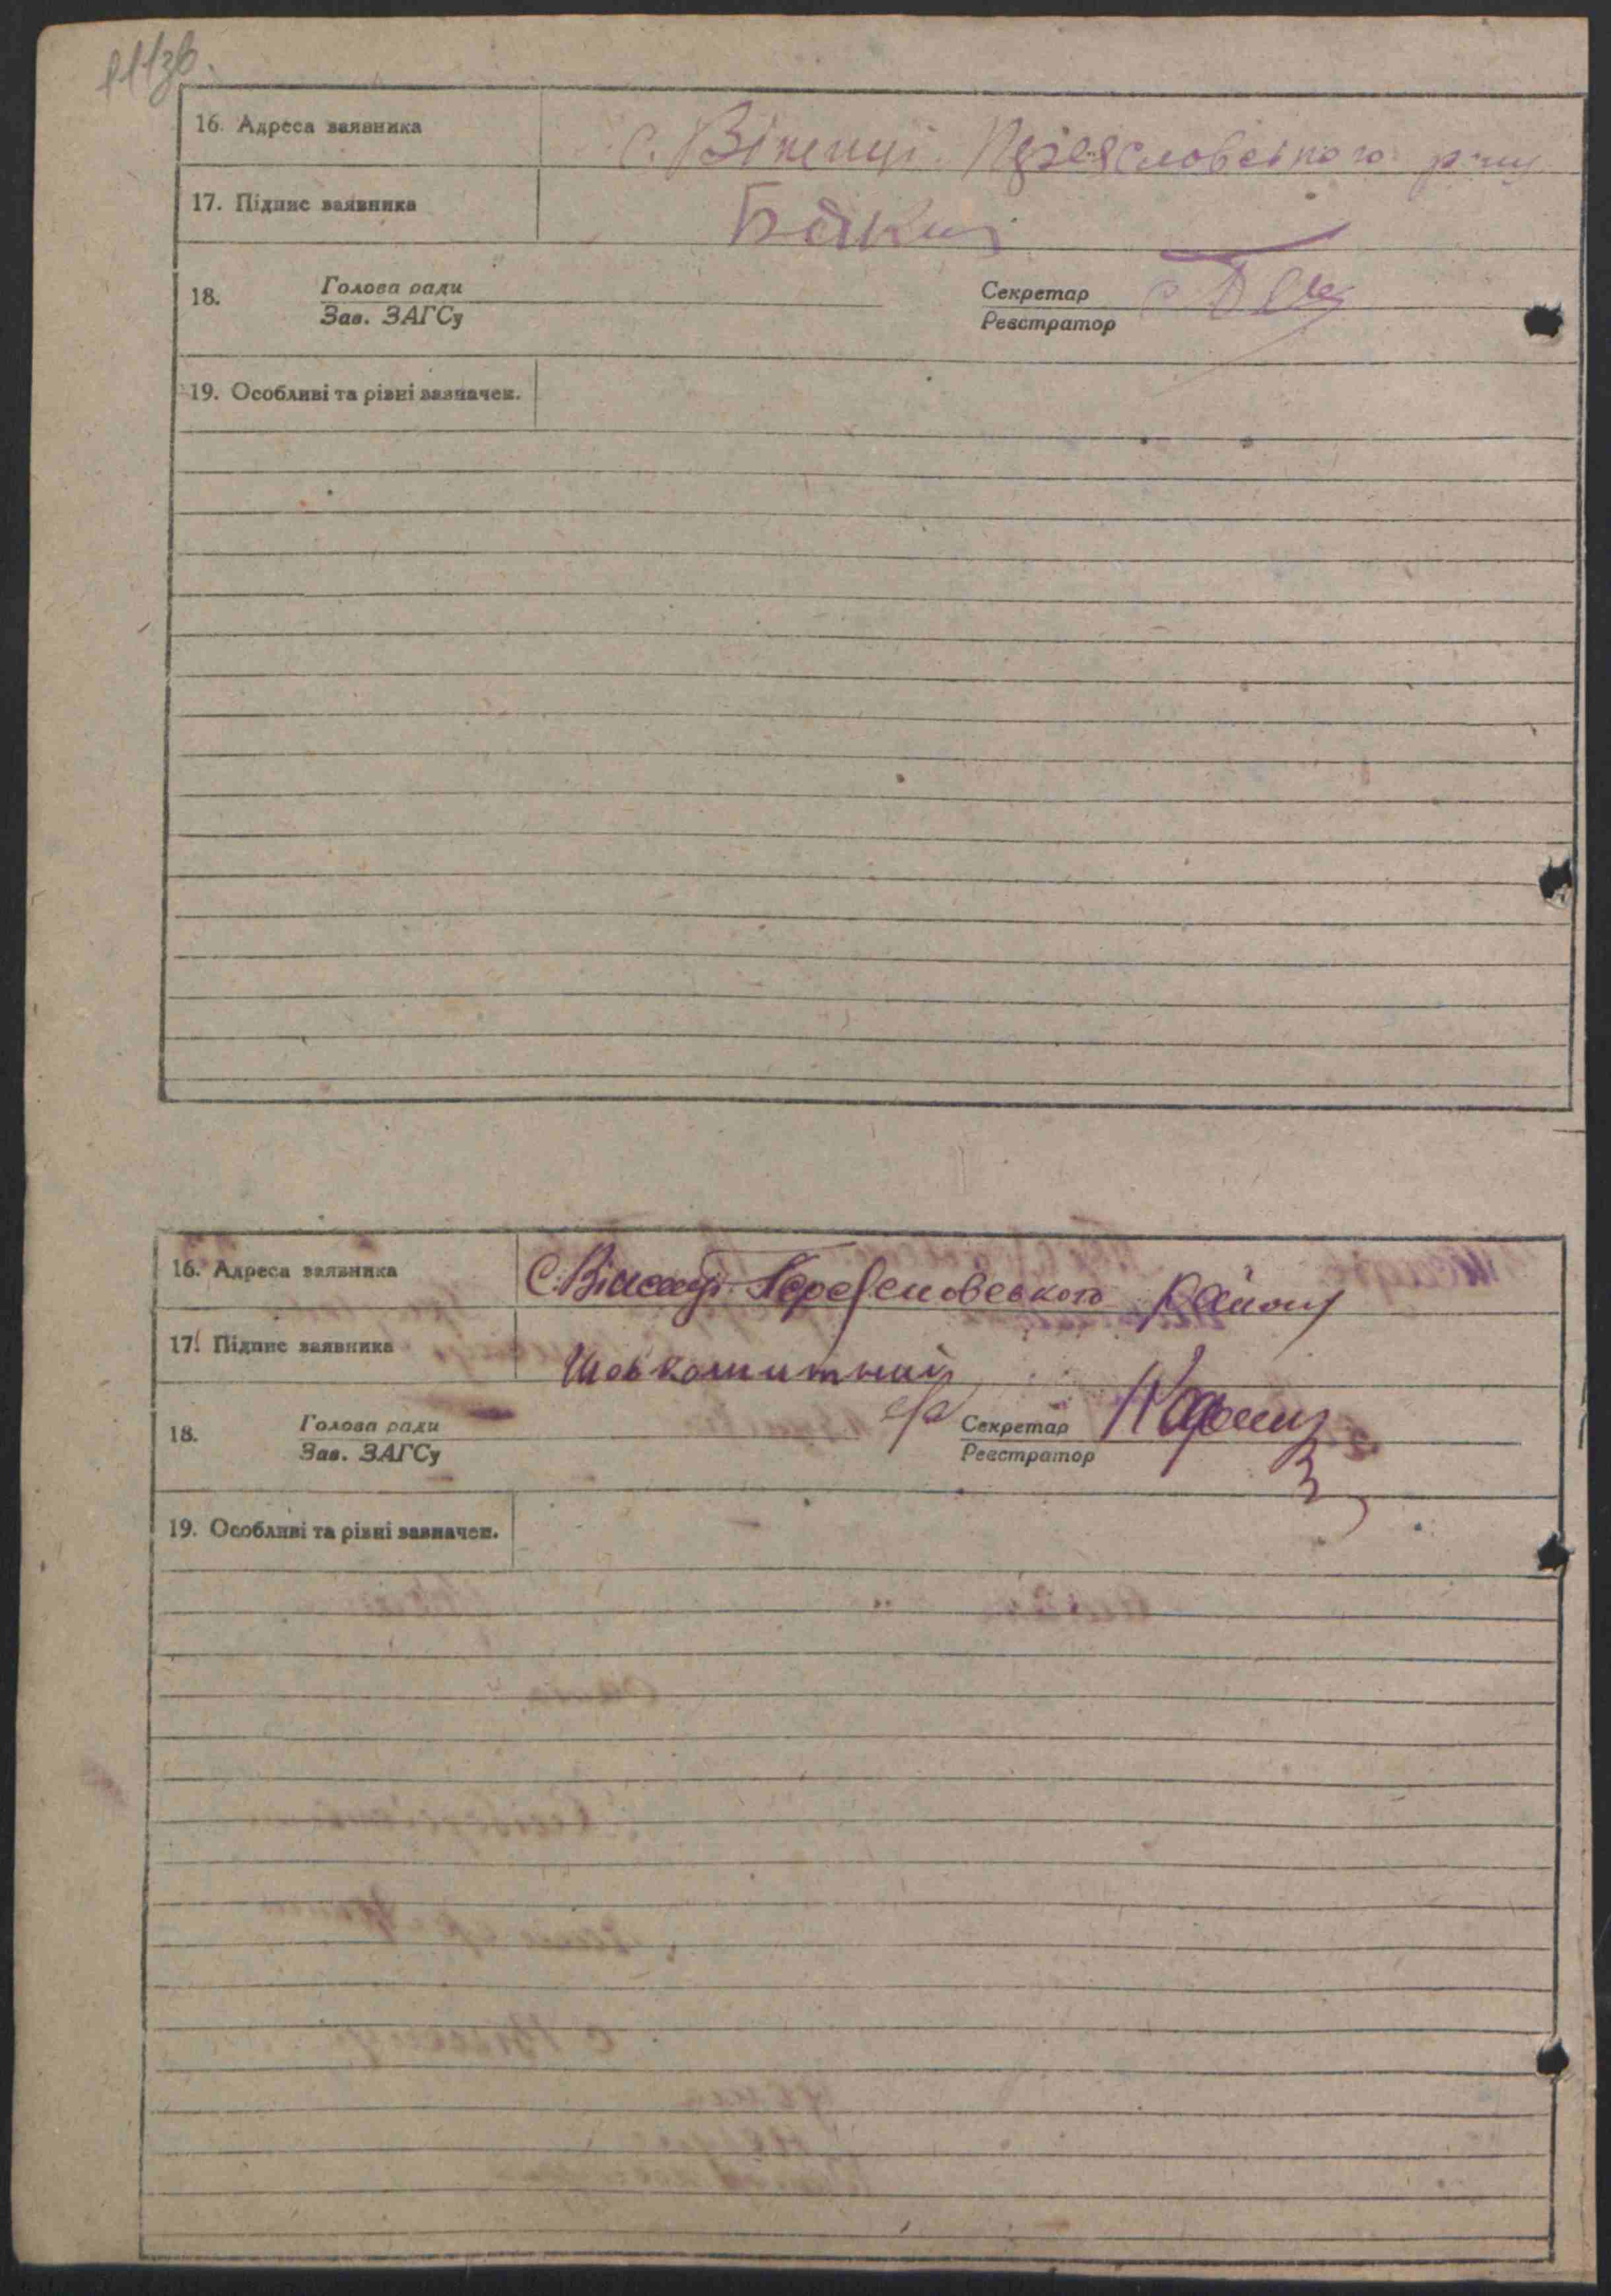 16. Адреса заявника с. Віненці Переясловського р-ну
17. Підпис заявника
18. Голова ради Секретар
Зав. ЗАГСу Реєстратор
19. Особливі та різні зазначен.
16. Адреса заявника С. Віненці Переясловського Району
17. Підпис заявника Шовкоплитний
18. Голова ради Секретар
Зав. ЗАГСу Реєстратор
19. Особливі та різні зазначен.